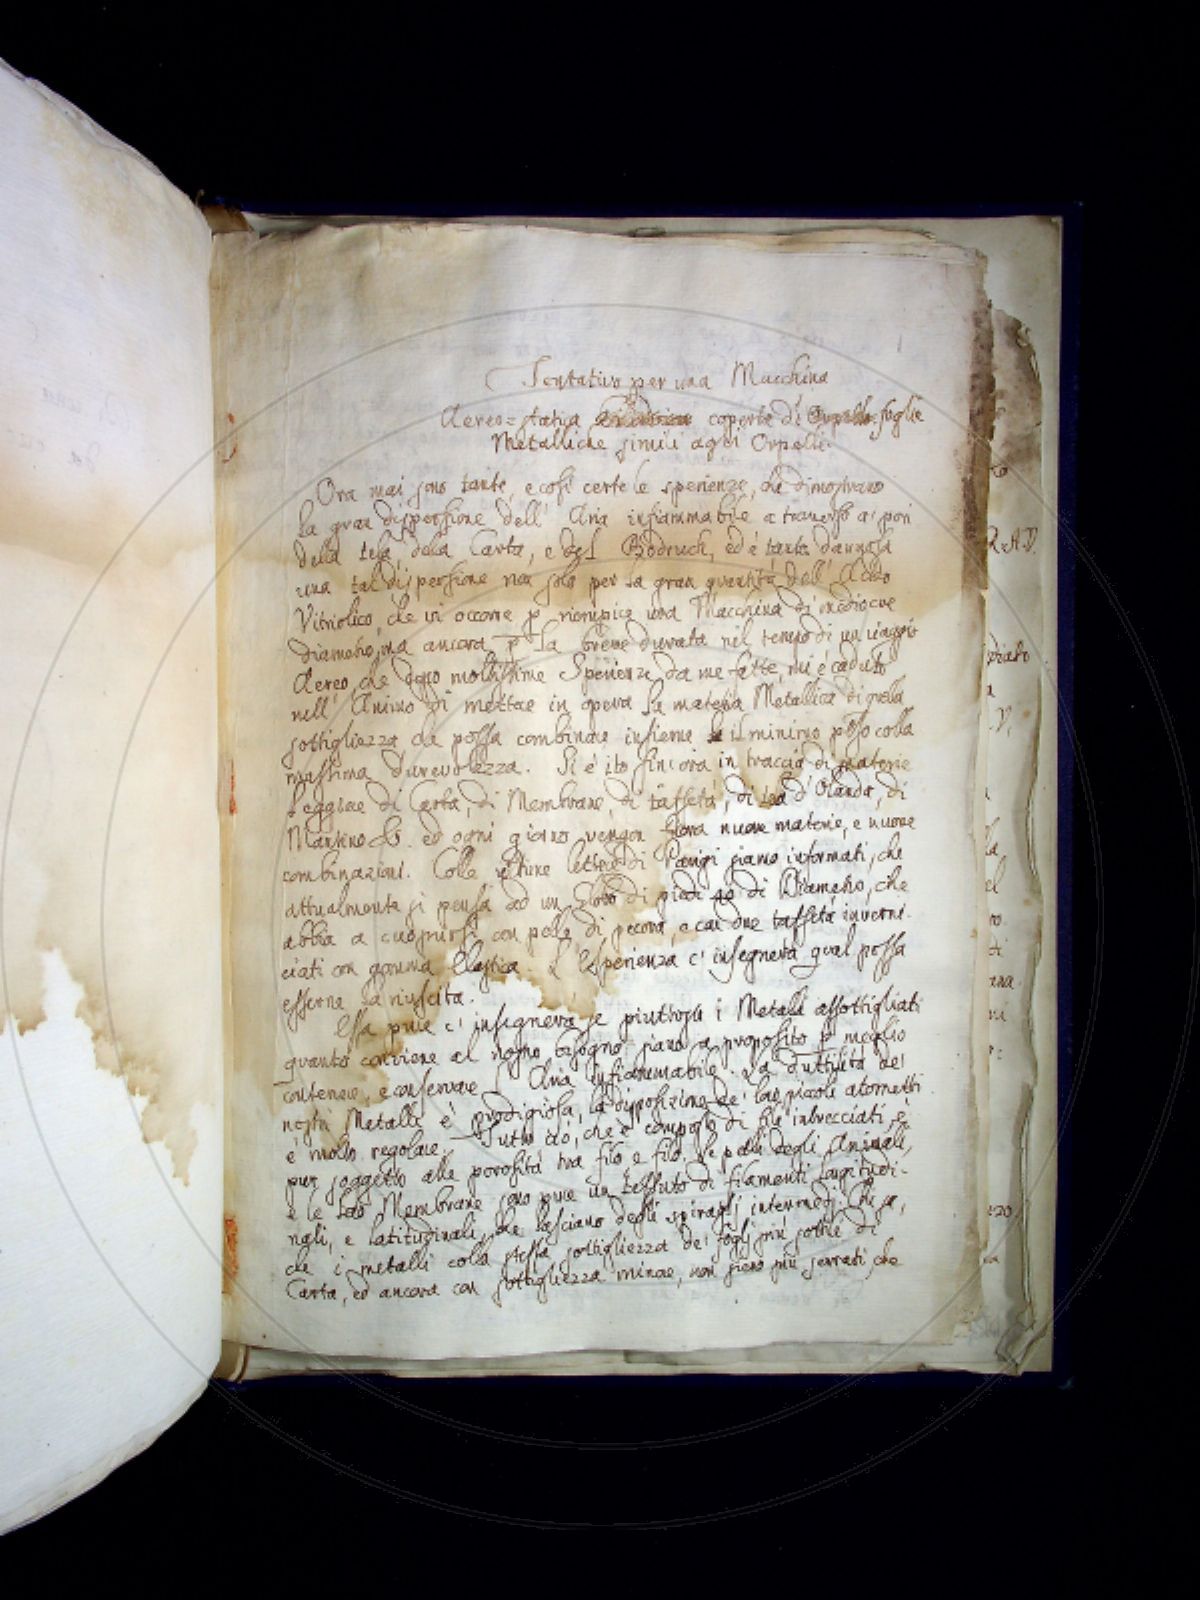 1
Tentativo per una Macchina
Aereo=statica coperta di foglie
Metalliche simili agli Orpelli.
Ora mai sono tante, e così certe le sperienze, che dimostrano
la gran dispersione dell' Aria infiammabile a traverso a' pori
della tela, della Carta, e del Bodruch, ed è tanto dannosa
una tal dispersione non solo per la gran quantità dell' Acido
Vitriolico, che vi occorre p riempire una Macchina di mediocre
diametro, ma ancora p la breve durata nel tempo di un viaggio
Aereo, che dopo moltissime Sperienze da me fatte, mi è caduto
nell' Animo di mettere in opera la materia Metallica di quella
sottigliezza che possa combinare insieme il minimo peso colla
massima durevolezza. Si è ito fin'ora in traccia di materie
leggiere di Carta, di Membrane, di taffetà, di tela d'Olanda, di
ed ogni giorno vengon fuora nuove materie, e nuove
combinazioni. Colle ultime lettere di Parigi siamo informati, che
attualmente si pensa ad un Globo di piedi di Diametro, che
abbia a cuoprirsi con pelle di pecora, e con due taffetà inverni-
ciati con gomma Elastica. L'Esperienza c'insegnerà qual possa
esserne la riuscita.
Essa pure c'insegnerà se piuttosto i Metalli assottigliati
quanto conviene al nostro bisogno siano a proposito p meglio
contenere, e conservare l'Aria infiammabile. La duttilità de'
nostri Metalli è prodigiosa, la disposizione de' loro piccoli atometti
è molto regolare. Tutto ciò, che è composto di fili intrecciati, è
pur soggetto alle porosità tra filo e filo. Le pelli degli Animali,
e le loro Membrane sono pure un tessuto di filamenti longitudi-
nali, e latitudinali, che lasciano degli spiragli intermedj. Chi sa,
che i metalli colla stessa sottigliezza de' fogli più sottili di
Carta, ed ancora con sottigliezza minore, non sieno più serrati, che